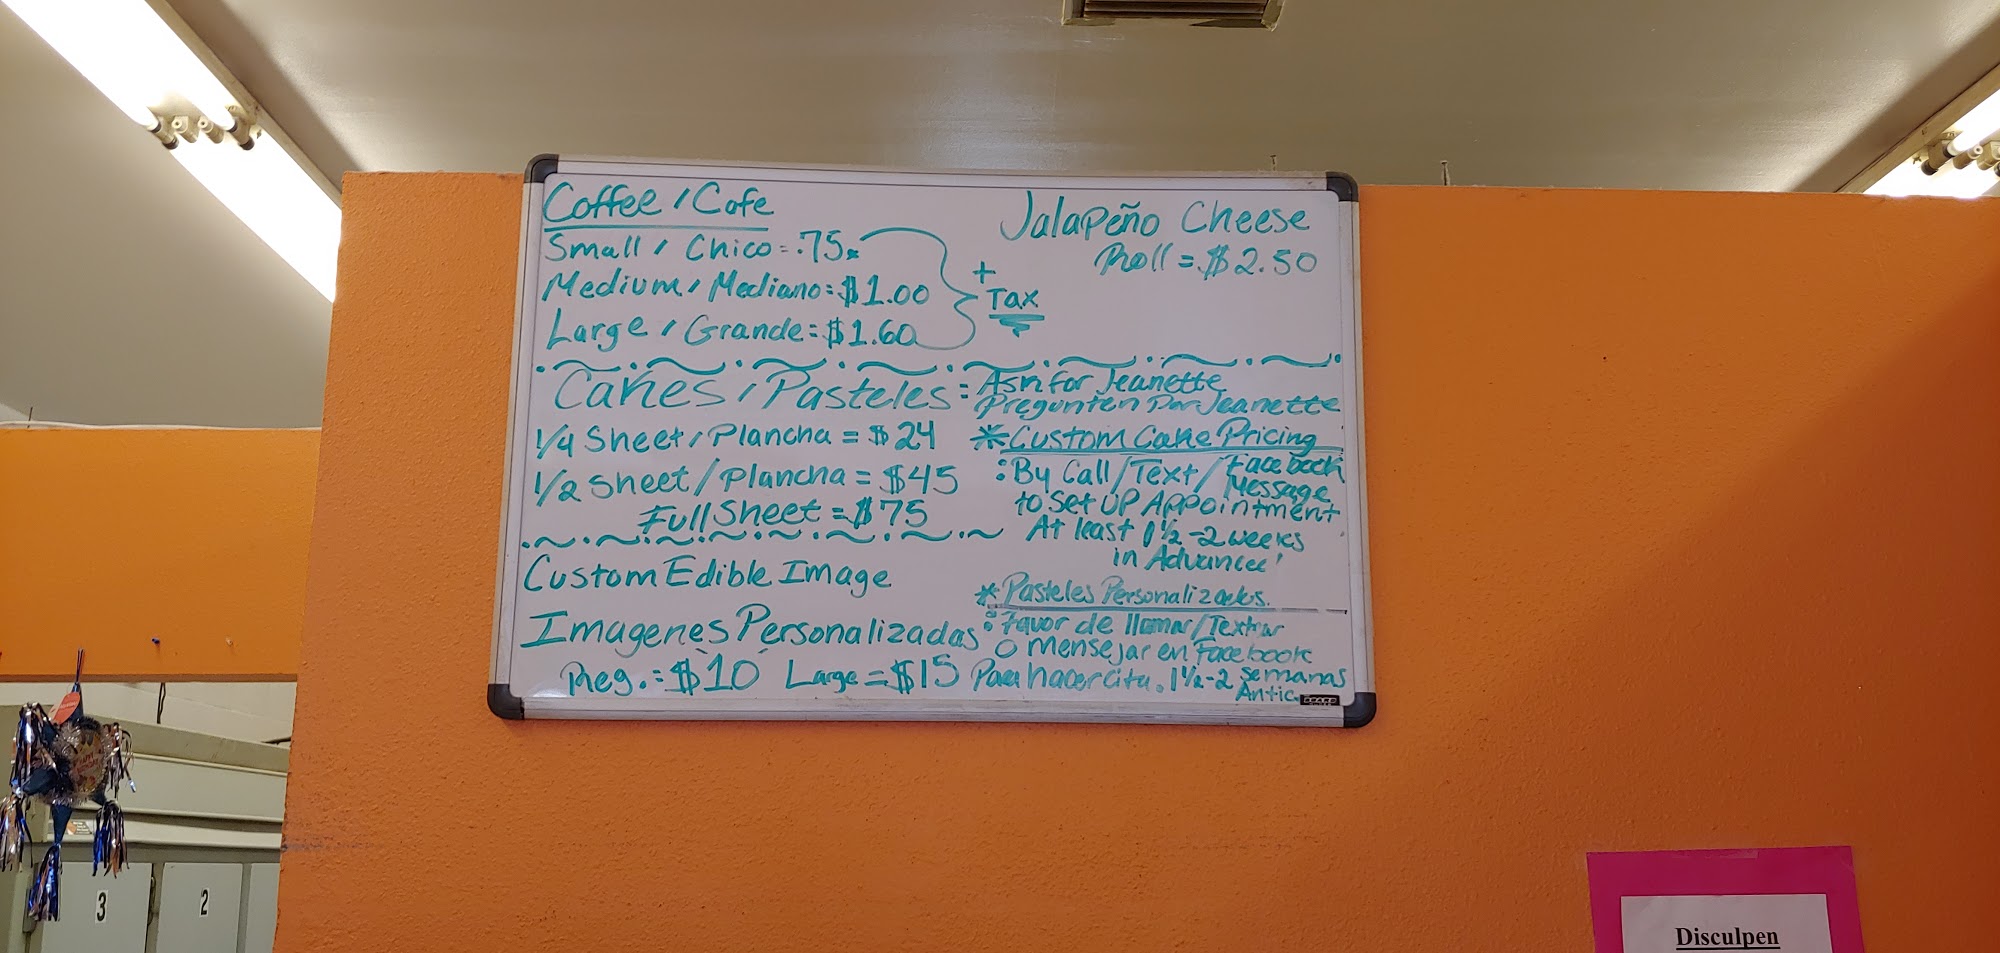 Coffee / Cafe
Small / Chico = .75
Medium / Mediano = $1.00
Large / Grande = $1.60
+
Tax
Jalapeño Cheese
Roll = $2.50
Cakes / Pasteles = Ask for Jeanette
Pregunten Por Jeanette
1/4 Sheet / Plancha = $24
1/2 Sheet / Plancha = $45
Full Sheet = $75
* Custom Cake Pricing
: By Call / Text / Facebook
Message
to Set UP Appointment
At least 1 1/2 - 2 weeks
in Advance!
Custom Edible Image
Imagenes Personalizadas
Reg. = $10 Large = $15
* Pasteles Personalizados.
: Favor de llamar / Textiar
O mensejar en Facebook
Para hacer cita. 1 1/2 - 2 Semanas
Antic.
3
2
Disculpen